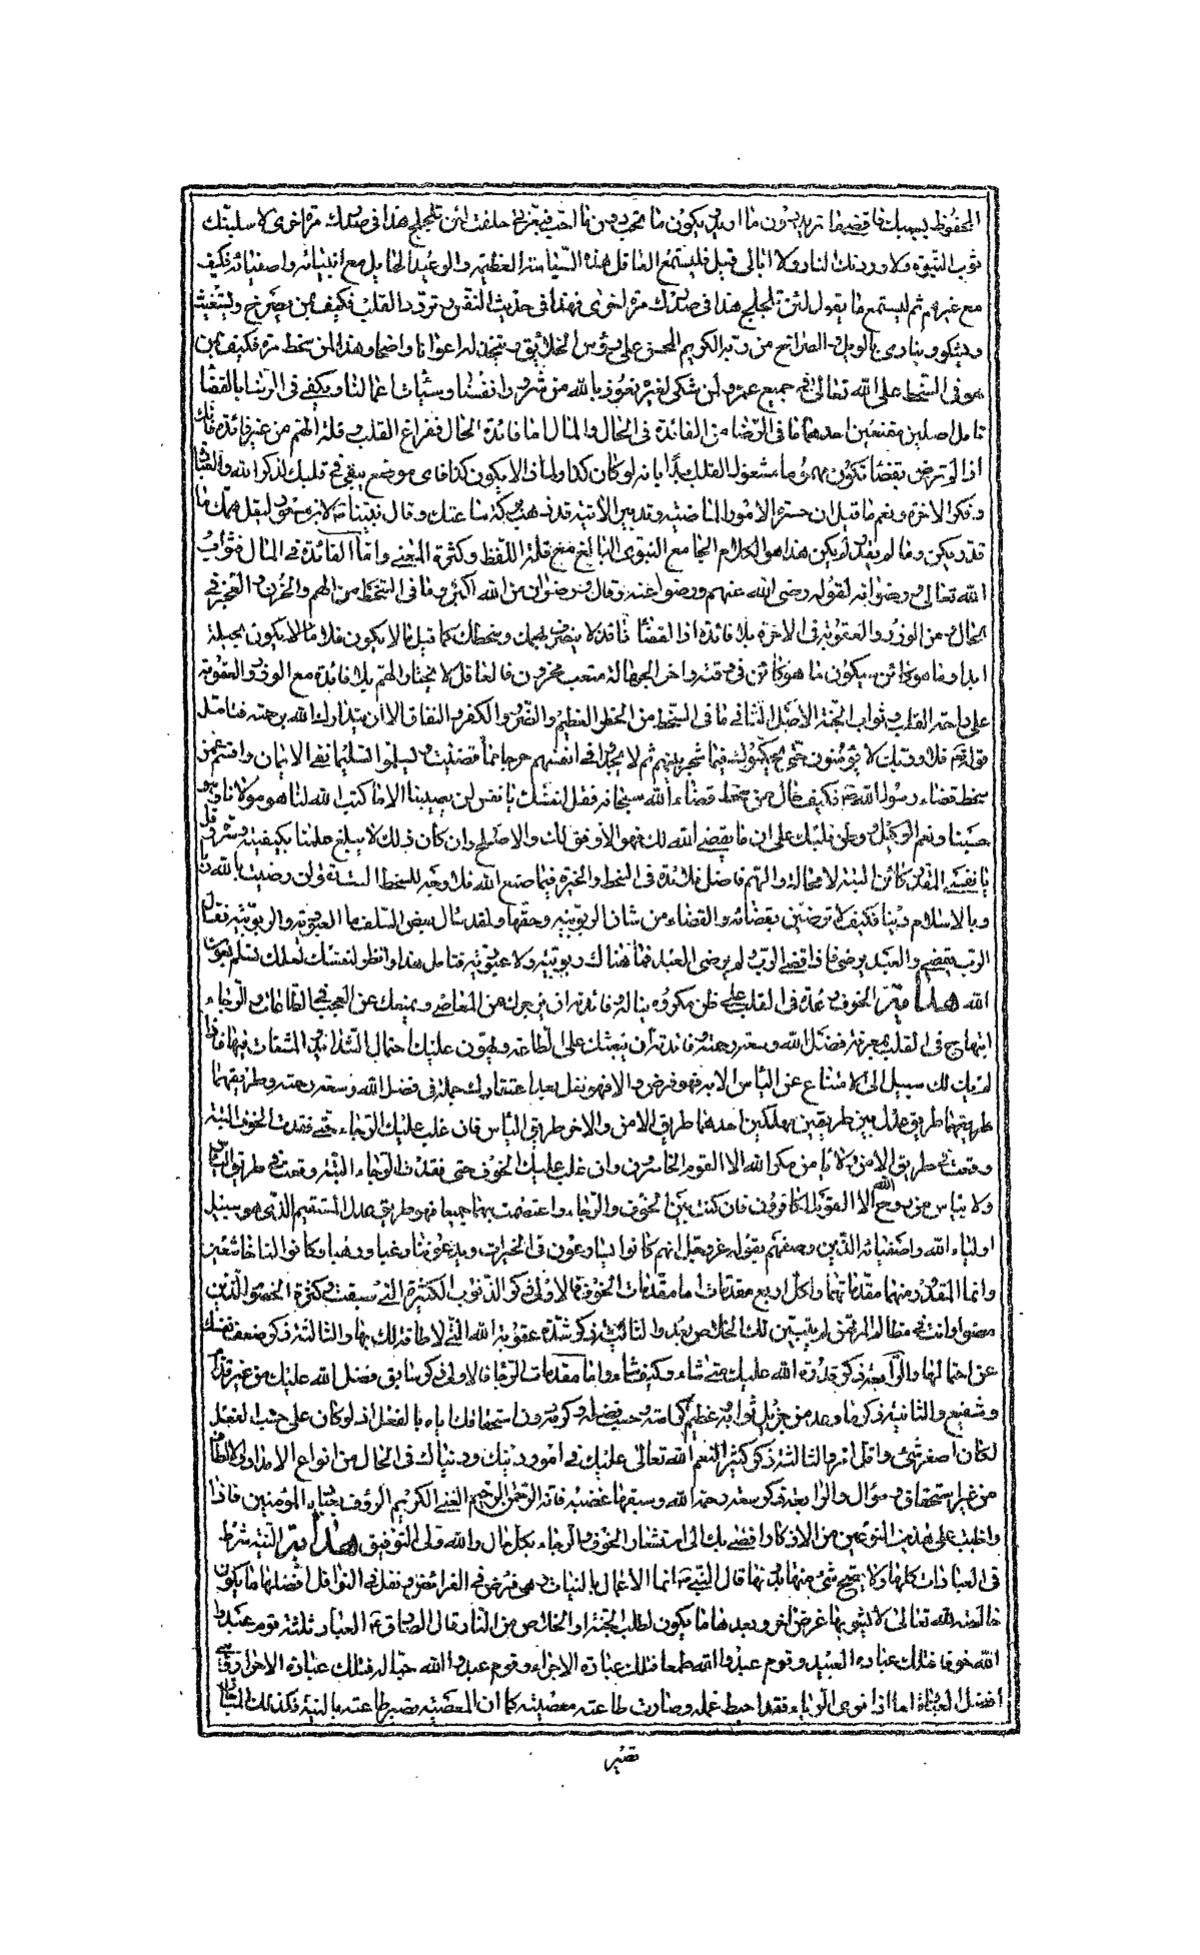 المحفوظ بسببك فاقضي ما تريد دون ما اريد ويكون ما تحب دون ما احب فبعزتي حلفت لئن تلجلج هذا في صدرك مرة اخرى لاسلبنك
ثوب النبوة ولاوردنك النار ولا ابالي قيل فليستمع العاقل هذه السياسة العظيمة والوعيد الهايل مع انبيائه واصفيائه فكيف
مع غيرهم ثم ليستمع ما يقول لئن تلجلج هذا في صدرك مرة اخرى فهذا في حديث النفس وتردد القلب فكيف بمن يصرخ ويستغيث
ويشكو وينادي بالويل والصراخ من ربه الكريم المحسن على رؤس الخلايق ويتخذ له اعوانا واصحابا وهذا لمن سخط مرة فكيف بمن
هو في السخط على الله تعالى في جميع عمره ولمن شكى لغيره نعوذ بالله من شرور انفسنا وسيئات اعمالنا ويكفي في الرضا بالقضا
تامل اصلين مقنعين احدهما ما في الرضا من الفائدة في الحال والمال اما فائدة الحال ففراغ القلب وقلة الهم من غير فائدة فانك
اذا لم ترض بقضا تكون مهموما مشغول القلب ابدا بانه لو كان كذا ولماذا لا يكون كذا فاي موضع يبقى في قلبك لذكر الله والعبادة
وفكر الاخرة ونعم ما قيل ان حسرة الامور الماضية وتدبير الاتية قد ذهب بركة ساعتك وقال نبينا ص لابن مسعود ليقل همك ما
قدر يكن وما لم يقدر لم يكن هذا هو الكلام الجامع النبوي البالغ مع قلة اللفظ وكثرة المعنى واما الفائدة في المال فثواب
الله تعالى ورضوانه لقوله رضى الله عنهم ورضوا عنه وقال ورضوان من الله اكبر وما في السخط من الهم والحزن والعجز في
الحال ومن الوزر والعقوبة في الاخرة بلا فائدة اذ القضا نافذ لا ينصرف بهمك وسخطك كما قيل ما لا يكون فلا يكون بحيلة
ابدا وما هو كائن سيكون ما هو كائن في وقته واخو الجهالة متعب محزون فالعاقل لا يختار الهم بلا فائدة مع الوزر والعقوبة
على راحة القلب وثواب الجنة الاصل الثاني ما في السخط من الخطر العظيم والضرر والكفر والنفاق الا ان يتدارك الله برحمته فتامل
قوله تعالى فلا وربك لا يؤمنون حتى يحكموك فيما شجر بينهم ثم لا يجدوا في انفسهم حرجا مما قضيت ويسلموا تسليما نفى الايمان واقسم عمن
سخط قضاء رسول الله ص فكيف حال من سخط قضاء الله سبحانه فقل لنفسك يا نفس لن يصيبنا الا ما كتب الله لنا هو مولانا وهو
حسبنا ونعم الوكيل وطن قلبك على ان ما يقضى الله لك فهو الاوفق لك والاصلح وان كان ذلك لا يبلغ علمنا بكيفيته وسره وقل
يا نفس المقدر كائن البتة لا محالة والهم فاضل فلا فائدة في السخط والخيرة فيما صنع الله فلا وجه للسخط الست قولن رضيت بالله ربا
وبالاسلام دينا فكيف لا ترضين بقضائه والقضاء من شان الربوبية وحقها ولقد سال بعض السلف ما العبودية والربوبية فقال
الرب يقضي والعبد يرضى فاذا قضى الرب ولم يرضى العبد فما هناك ربوبية ولا عبودية فتامل هذا وانظر لنفسك لعلك تسلم بعون
الله هداية الخوف رعدة في القلب على ظن مكروه يناله وفائدته ان يزجرك عن المعاصي ويمنعك عن العجب في الطاعات والرجاء
ابتهاج في القلب بمعرفة فضل الله وسعة رحمته وفائدته ان يبعثك على الطاعة ويهون عليك احتمال الشدائد والمشقات فيها فاذا
لم يك لك سبيل الى الامتناع عن الياس الا به فهو فرض والا فهو نفل بعد اعتقادك جملة في فضل الله وسعة رحمته وطريقهما
طريقهما طريق عدل بين طريقين مهلكين احدهما طريق الامن والاخر طريق اليأس فان غلب عليك الرجاء حتى فقدت الخوف البتة
وقعت في طريق الامن ولا يأمن مكر الله الا القوم الخاسرون وان غلب عليك الخوف حتى فقدت الرجاء البتة وقعت في طريق الياس
ولا يياس من روح الله الا القوم الكافرون فان كنت بين الخوف والرجاء واعتصمت بهما جميعا فهو طريق عدل المستقيم الذي هو سبيل
اولياء الله واصفيائه الذين وصفهم بقوله عز وجل انهم كانوا يسارعون في الخيرات ويدعوننا رغبا ورهبا وكانوا لنا خاشعين
وانما المقدور منهما مقدماتهما ولكل اربع مقدمات اما مقدمات الخوف فالاولى ذكر الذنوب الكثيرة التي سبقت وكثرة الخصوم الذين
مضوا وانت في مظالمهم مرتهن لم يتبين لك الخلاص بعد والثانية ذكر شدة عقوبة الله التي لا طاقة لك بها والثالثة ذكر ضعف نفسك
عن احتمالها والرابعة ذكر قدرة الله عليك متى شاء وكيف شاء واما مقدمات الرجا فالاولى ذكر سابق فضل الله عليك من غير قدم
وشفيع والثانية ذكر ما وعد من جزيل ثوابه وعظيم كرامته وحسب فضله وكرمه دون استحقاقك اياه بالفعل اذ لو كان على حسب الفعل
لكان اصغر شئ واقل امر والثالثة ذكر كثير النعم الله تعالى عليك في امور دينك ودنياك في الحال من انواع الامداد والالطاف
من غير استحقاق وسؤال والرابعة ذكر سعة رحمة الله وسبقها غضبه فانه الرحمن الرحيم الغني الكريم الرؤف بعباده المؤمنين فاذا
واظبت على هذين النوعين من الاذكار افضى بك الى استشعار الخوف والرجاء بكل حال والله ولى التوفيق هداية النية شرط
في العبادات كلها ولا يصح شئ منها بدونها قال النبي ص انما الاعمال بالنيات وهي فرض في الفرائض ونفل في النوافل افضلها ما يكون
خالصة لله تعالى لا يشوبها غرض اخر وبعدها ما يكون لطلب الجنة او الخلاص من النار قال الصادق ع العباد ثلثة قوم عبدوا
الله خوفا فتلك عبادة العبيد وقوم عبدوا الله طمعا فتلك عبادة الاجراء وقوم عبدوا الله حبا له فتلك عبادة الاحرار وهي
افضل العبادة اما اذا نوى الرياء فقد احبط عمله وصارت طاعته معصية كما ان المعصية تصير طاعته بالنية فكذلك المباحات
تصير